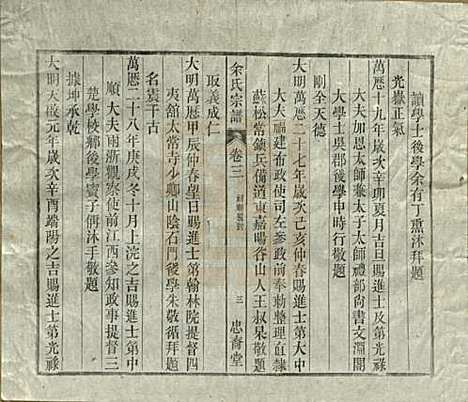 讀學士後學余有丁熏沐拜題
光嶽正氣
萬曆十九年歲次辛卯夏月吉旦賜進士及第
大學士吳郡後學申時行敬題
剛全天德
大明萬曆二十七年歲次己亥仲春賜進士第大中
大夫福建布政使司左參政前奉勅整理直隸
蘇松常鎮兵備酒東嘉暘谷山人王叔杲敬題
余氏宗譜
卷三
三
忠肅堂
取義成仁
大明萬曆甲辰仲春望日賜進士第翰林院提督四
夷舘太常寺少卿山陰石門後學朱敬循拜題
名震千古
萬曆二十八年庚戌冬十月上浣之吉賜進士第中
順大夫兩浙觀察使前江西參知政事提督三
楚學校鄉後學竇子偁沐手敬題
據坤承乾
大明天啟元年歲次辛酉端陽之吉賜進士第光祿